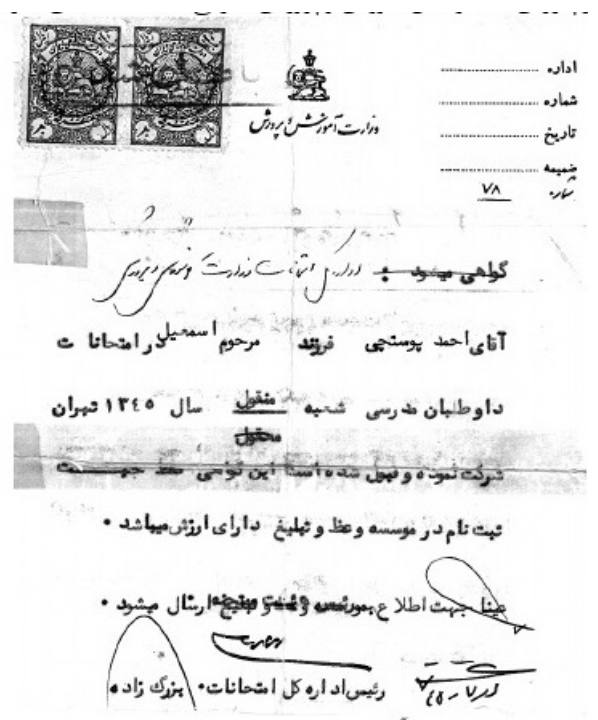 اداره
شماره
تاریخ
ضمیمه
وزارت آموزش و پرورش
شماره ۷۸
گواهی میشود :
آقای احمد پوستچی فرزند مرحوم اسمعیل در امتحانات
داوطلبان مدرسی شعبه منقول سال ۱۳۴۵ تهران
معقول
شرکت نموده و قبول شده است این گواهی فقط جهت
ثبت نام در موسسه وعظ و تبلیغ دارای ارزش میباشد .
عینا جهت اطلاع بموسسه وعظ و تبلیغ ارسال میشود .
رئیس اداره کل امتحانات . بزرگ زاده